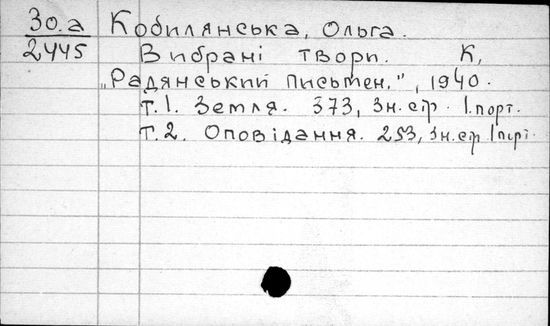 30.а Кобилянська, Ольга.
2445 Вибрані твори. К,
„Радянський письмен.", 1940.
т.1. Земля. 373, 3 н. стр. 1 порт.
т.2. Оповідання. 253, 3 н. стр 1 порт.